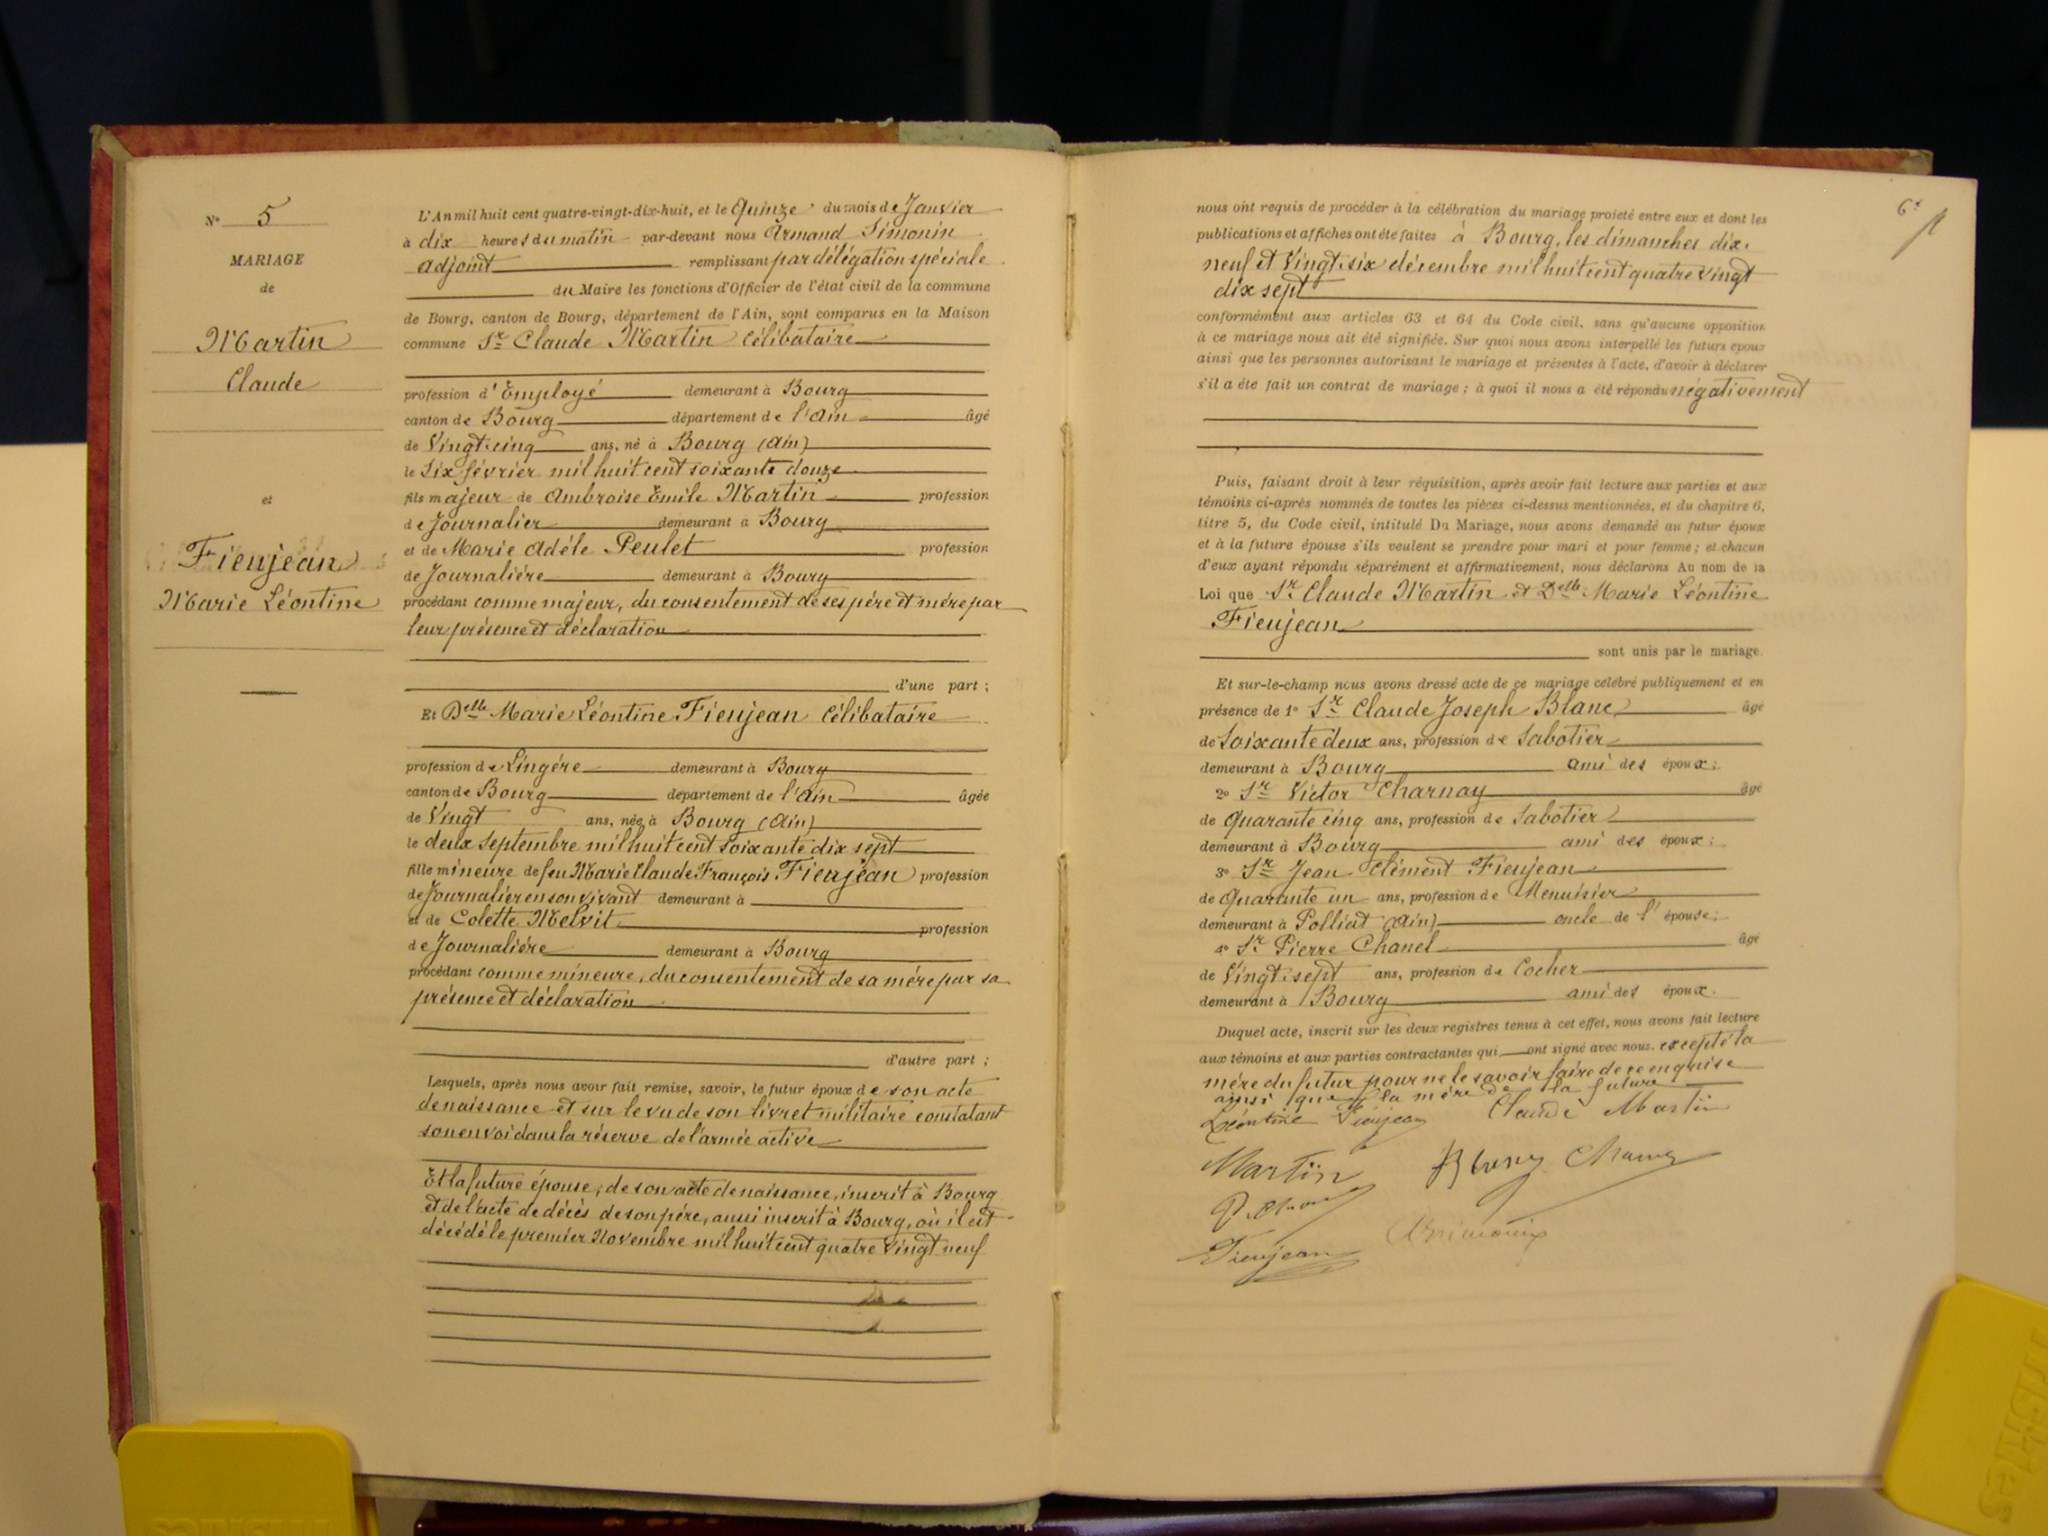 N° 5
MARIAGE
de
Martin
Claude
et
Fieujean
Marie Léontine
L'An mil huit cent quatre-vingt-dix-huit, et le Quinze du mois de Janvier
à dix heures du matin par-devant nous Armand Simonin
adjoint remplissant par délégation spéciale
du Maire les fonctions d'Officier de l'état civil de la commune
de Bourg, canton de Bourg, département de l'Ain, sont comparus en la Maison
commune Sr Claude Martin célibataire
profession d'Employé demeurant à Bourg
canton de Bourg département de l'Ain âgé
de Vingt-cinq ans, né à Bourg (Ain)
le Six février mil huit cent soixante douze
fils majeur de Ambroise Emile Martin profession
de Journalier demeurant à Bourg
et de Marie Adèle Peulet profession
de Journalière demeurant à Bourg
procédant comme majeur, du consentement de ses père et mère par
leur présence et déclaration
d'une part ;
Et Delle Marie Léontine Fieujean célibataire
profession de Lingère demeurant à Bourg
canton de Bourg département de l'Ain âgée
de Vingt ans, née à Bourg (Ain)
le deux Septembre mil huit cent soixante dix sept
fille mineure de feu Marie Claude François Fieujean profession
de Journalier en son vivant demeurant à
et de Colette Melvit profession
de Journalière demeurant à Bourg
procédant comme mineure, du consentement de sa mère par sa
présence et déclaration
d'autre part ;
Lesquels, après nous avoir fait remise, savoir, le futur époux de son acte
de naissance et sur le vu de son livret militaire constatant
son envoi dans la réserve de l'armée active
Et la future épouse, de son acte de naissance, inscrit à Bourg
et de l'acte de décès de son père, aussi inscrit à Bourg, où il est
décédé le premier Novembre mil huit cent quatre vingt neuf
6e
nous ont requis de procéder à la célébration du mariage projeté entre eux et dont les
publications et affiches ont été faites à Bourg, les dimanches dix-
neuf et Vingt-six décembre mil huit cent quatre vingt
dix sept
conformément aux articles 63 et 64 du Code civil, sans qu'aucune opposition
à ce mariage nous ait été signifiée. Sur quoi nous avons interpellé les futurs époux
ainsi que les personnes autorisant le mariage et présentes à l'acte, d'avoir à déclarer
s'il a été fait un contrat de mariage ; à quoi il nous a été répondu négativement
Puis, faisant droit à leur réquisition, après avoir fait lecture aux parties et aux
témoins ci-après nommés de toutes les pièces ci-dessus mentionnées, et du chapitre 6,
titre 5, du Code civil, intitulé Du Mariage, nous avons demandé au futur époux
et à la future épouse s'ils veulent se prendre pour mari et pour femme ; et chacun
d'eux ayant répondu séparément et affirmativement, nous déclarons Au nom de la
Loi que Sr Claude Martin et Delle Marie Léontine
Fieujean
sont unis par le mariage.
Et sur-le-champ nous avons dressé acte de ce mariage célébré publiquement et en
présence de 1° Sr Claude Joseph Blanc âgé
de Soixante deux ans, profession de Sabotier
demeurant à Bourg ami des époux ;
2° Sr Victor Charnay âgé
de Quarante cinq ans, profession de Sabotier
demeurant à Bourg ami des époux ;
3° Sr Jean Clément Fieujean
de Quarante un ans, profession de Menuisier
demeurant à Polliat (Ain) oncle de l'épouse ;
4° Sr Pierre Chanel âgé
de Vingt-sept ans, profession de Cocher
demeurant à Bourg ami des époux.
Duquel acte, inscrit sur les deux registres tenus à cet effet, nous avons fait lecture
aux témoins et aux parties contractantes qui ont signé avec nous. excepté la
mère du futur pour ne le savoir faire de ce enquise
ainsi que la mère de la future
Léontine Fieujean Claude Martin
Martin
Fieujean